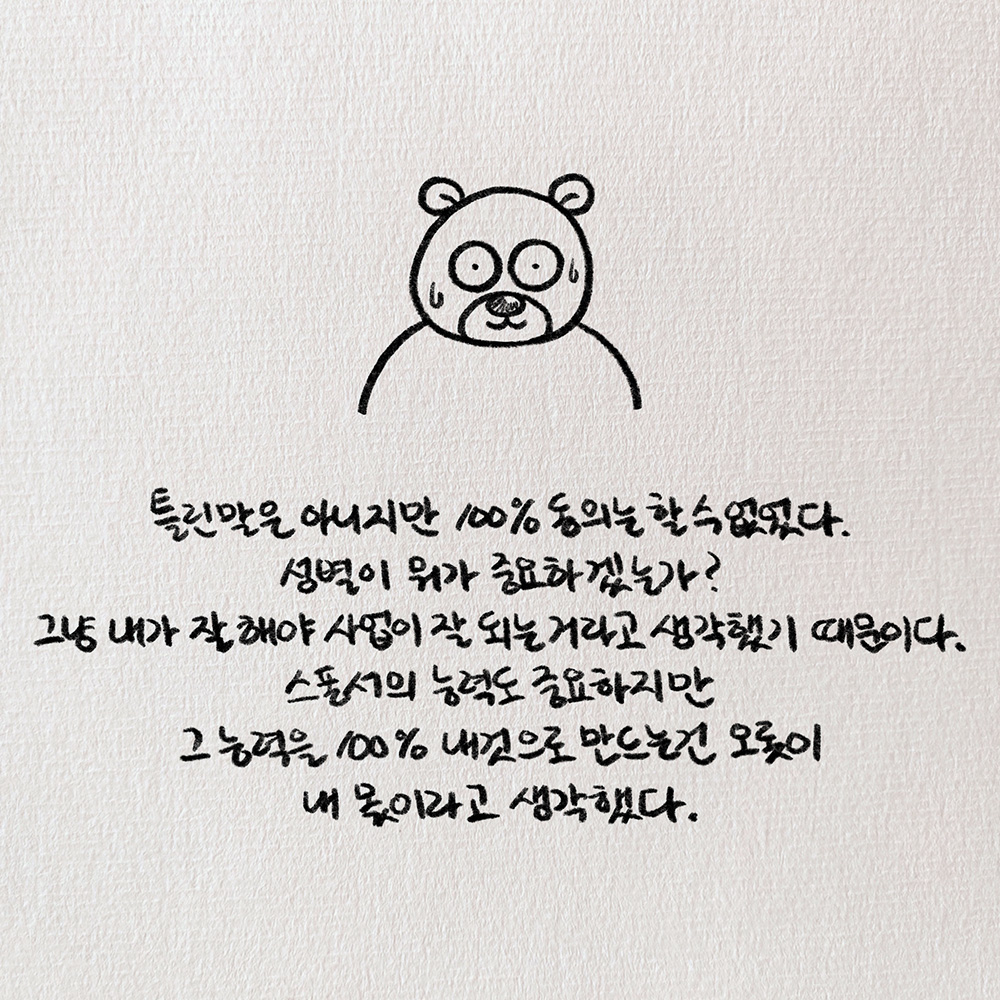 틀린말은 아니지만 100% 동의는 할 수 없었다.
성별이 뭐가 중요하겠는가?
그냥 내가 잘해야 사업이 잘 되는거라고 생각했기 때문이다.
스폰서의 능력도 중요하지만
그 능력을 100% 내것으로 만드는건 오롯이
내 몫이라고 생각했다.